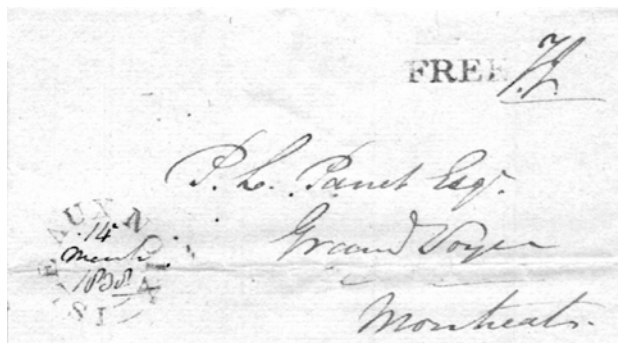 FREE
P. L. Panet Esqr.
Grand Voyer
Montreal.
14
March
1838
ISLE AUX NOIX